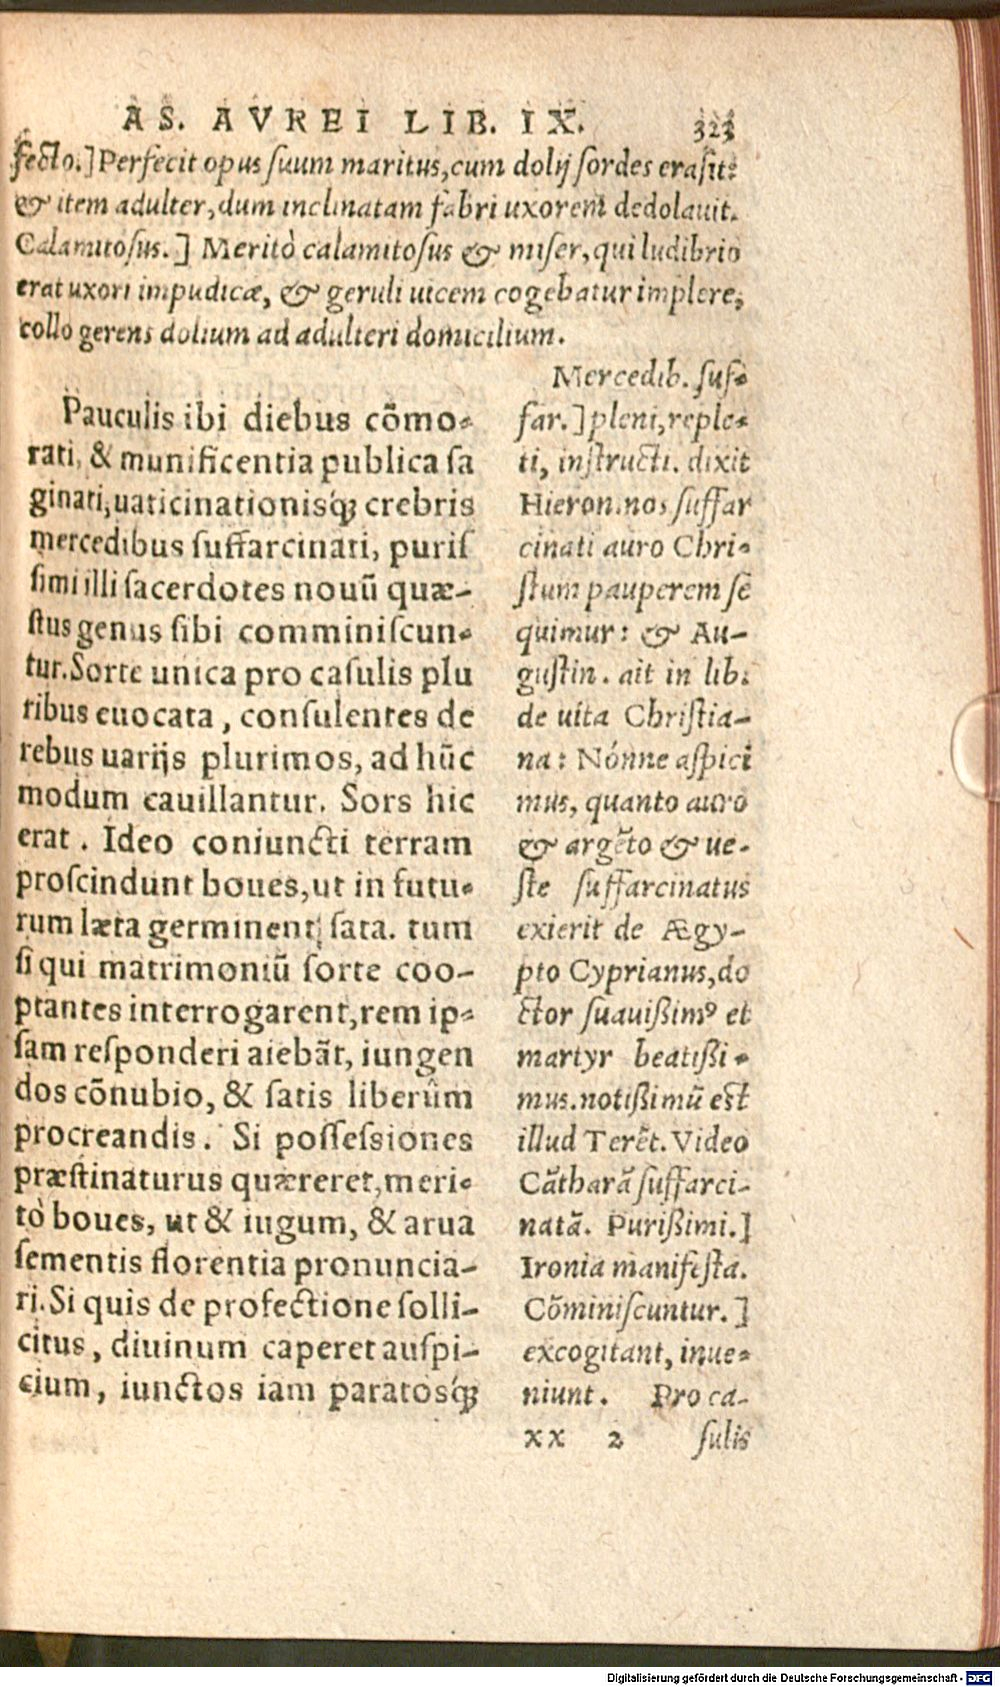 AS. AVREI LIB. IX. 323
fecto.] Perfecit opus suum maritus, cum dolij sordes erasit:
& item adulter, dum inclinatam fabri uxorem dedolauit.
Calamitosus.] Meritò calamitosus & miser, qui ludibrio
erat uxori impudicæ, & geruli uicem cogebatur implere,
collo gerens dolium ad adulteri domicilium.
Pauculis ibi diebus cõmo-
rati, & munificentia publica sa
ginati, uaticinationisq́; crebris
mercedibus suffarcinati, puris
simi illi sacerdotes nouũ quæ-
stus genus sibi comminiscun-
tur. Sorte unica pro casulis plu
ribus euocata, consulentes de
rebus uarijs plurimos, ad hũc
modum cauillantur. Sors hic
erat. Ideo coniuncti terram
proscindunt boues, ut in futu-
rum læta germinent sata. tum
si qui matrimoniũ sorte coo-
ptantes interrogarent, rem ip-
sam responderi aiebãt, iungen
dos cõnubio, & satis liberûm
procreandis. Si possessiones
præstinaturus quæreret, meri-
tò boues, ut & iugum, & arua
sementis florentia pronuncia-
ri. Si quis de profectione solli-
citus, diuinum caperet auspi-
cium, iunctos iam paratosq́;
Mercedib. suf-
far.] pleni, reple-
ti, instructi. dixit
Hieron. nos suffar
cinati auro Chri-
stum pauperem se
quimur: & Au-
gustin. ait in lib.
de uita Christia-
na: Nónne aspici
mus, quanto auro
& argẽto & ue-
ste suffarcinatus
exierit de Ægy-
pto Cyprianus, do
ctor suauißimꝰ et
martyr beatißi-
mus. notißimũ est
illud Terẽt. Video
Cãtharã suffarci-
natã. Purißimi.]
Ironia manifesta.
Cõminiscuntur.]
excogitant, inue-
niunt. Pro ca-
xx 2 sulis
Digitalisierung gefördert durch die Deutsche Forschungsgemeinschaft - DFG